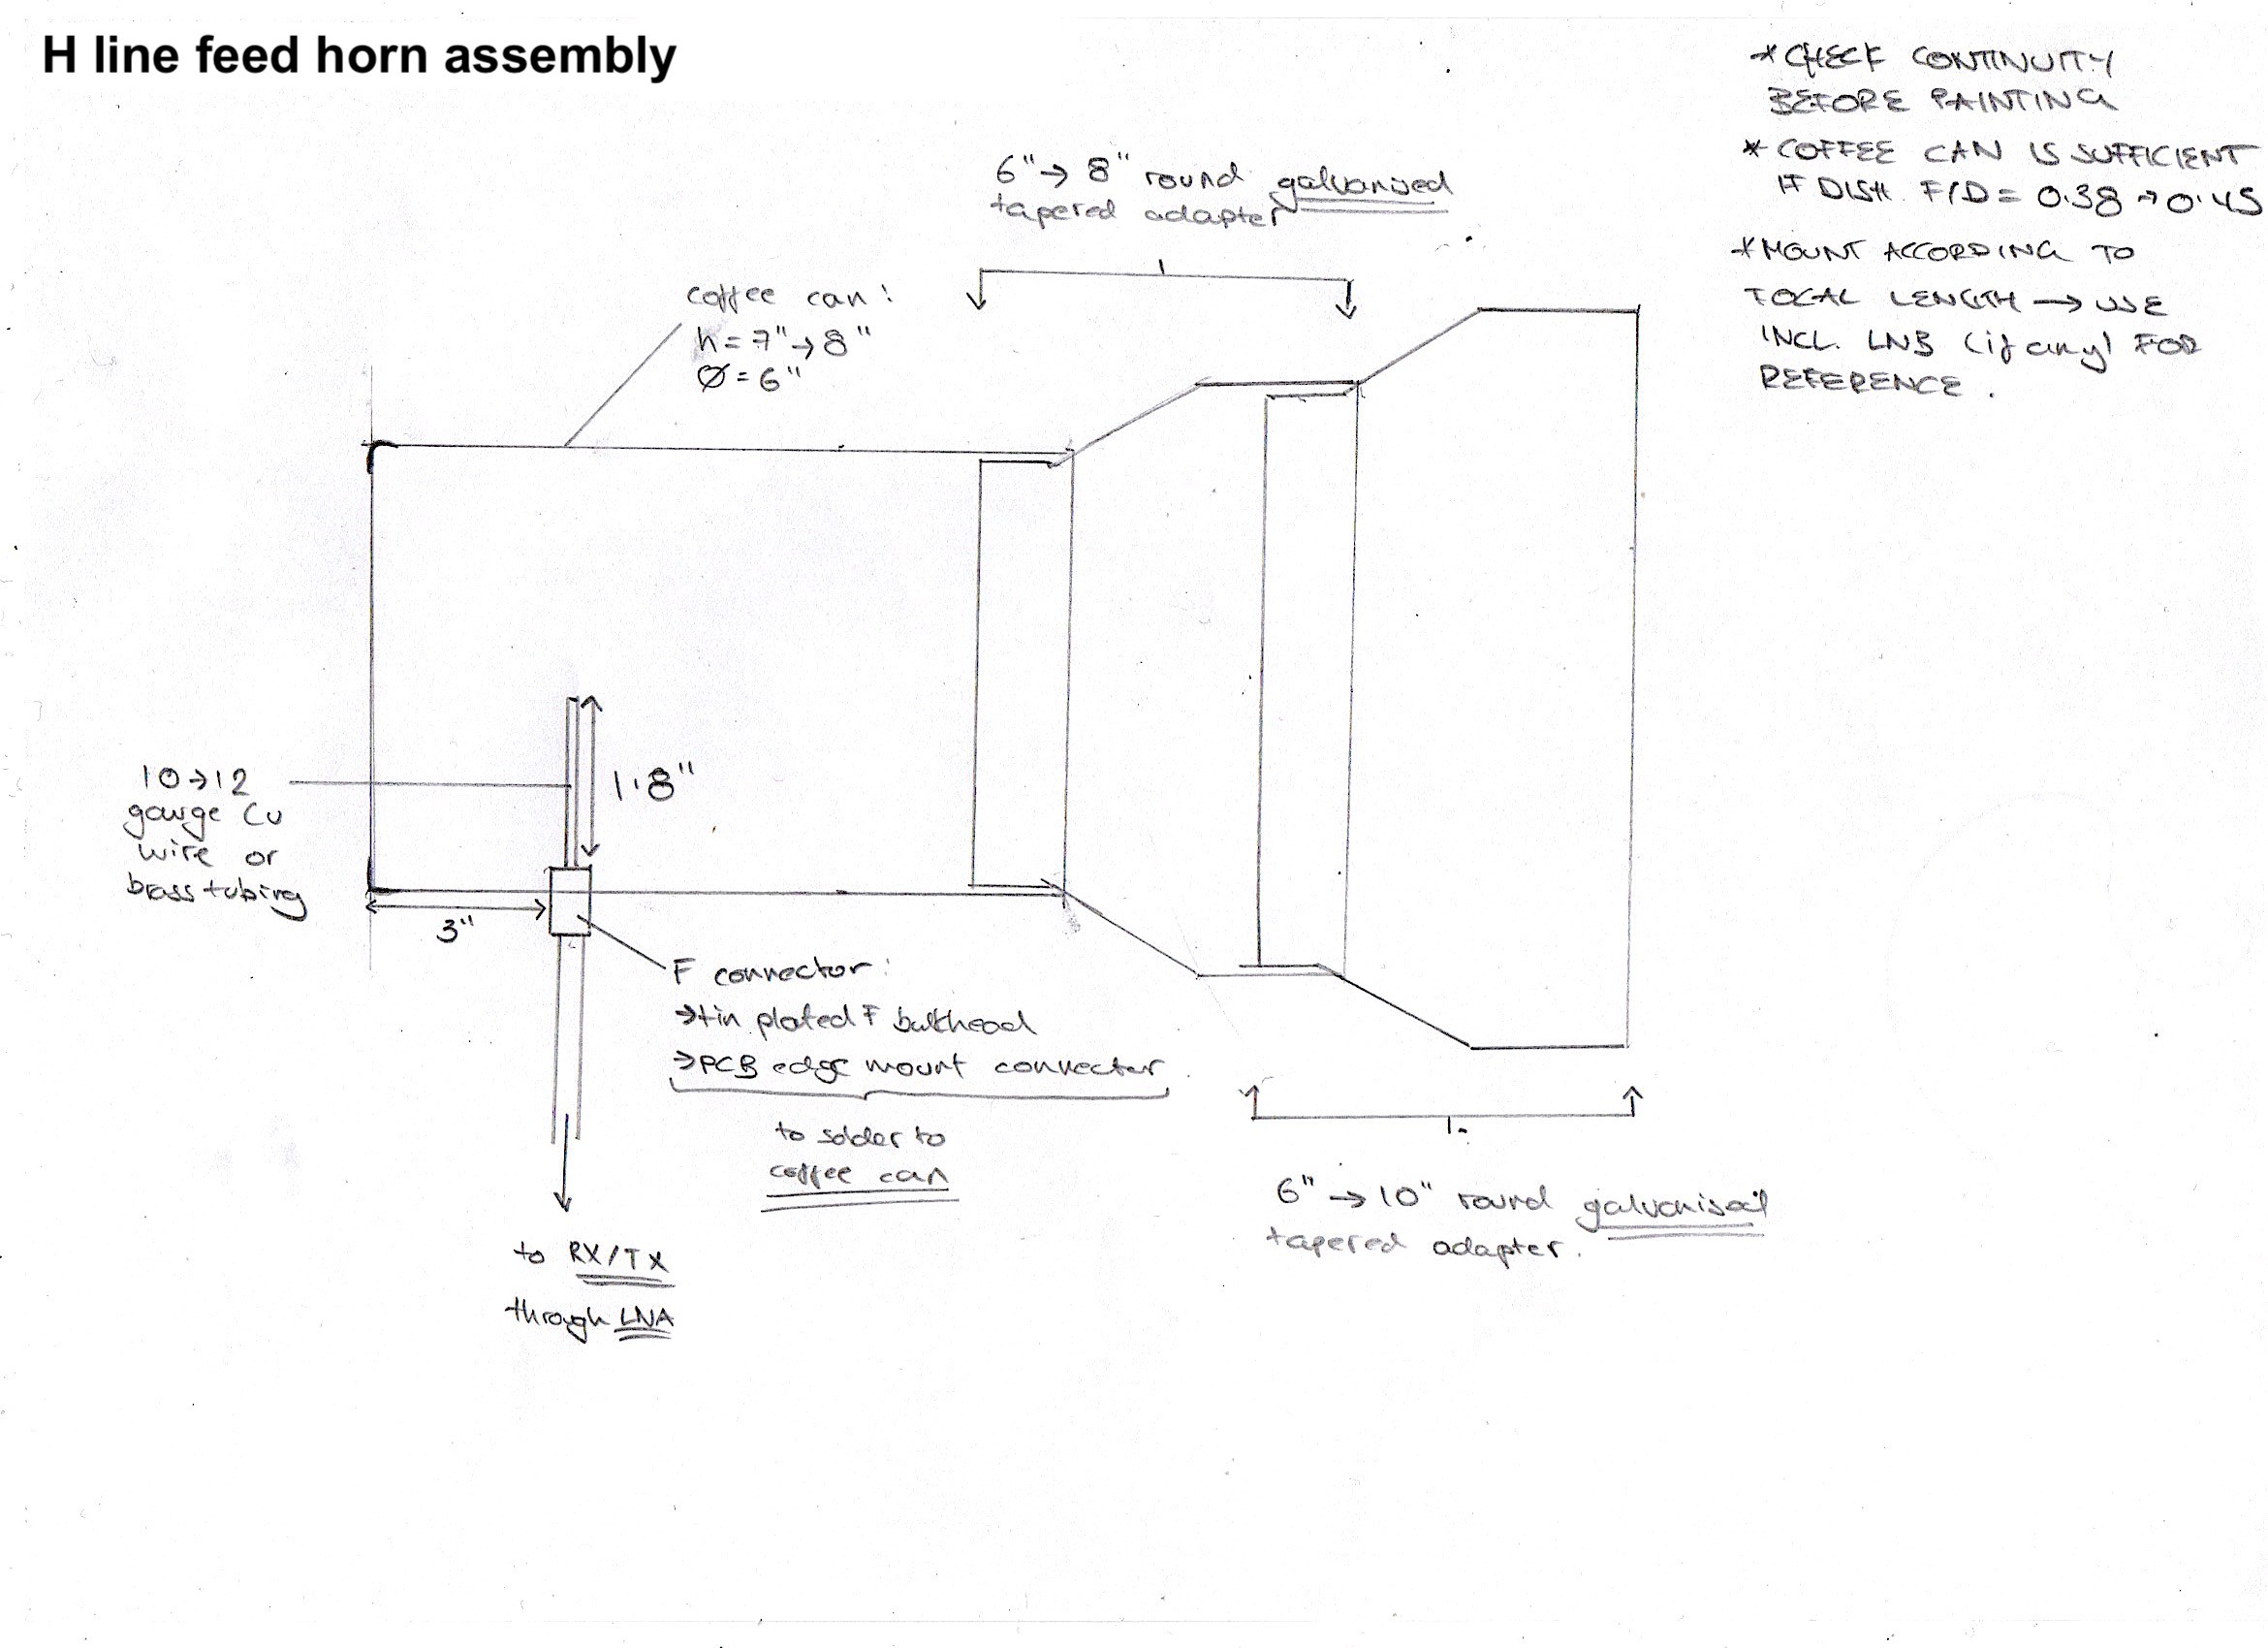 H line feed horn assembly
* CHECK CONTINUITY
BEFORE PAINTING
* COFFEE CAN IS SUFFICIENT
IF DISH F/D = 0.38 → 0.45
* MOUNT ACCORDING TO
FOCAL LENGTH → USE
INCL. LNB (if any) FOR
REFERENCE.
6" → 8" round galvanised
tapered adapter
coffee can:
h = 7" → 8"
Ø = 6"
1.8"
10 → 12
gauge Cu
wire or
brass tubing
3"
F connector:
→ tin plated F bulkhead
→ PCB edge mount connector
to solder to
coffee can
to RX/TX
through LNA
6" → 10" round galvanised
tapered adapter.